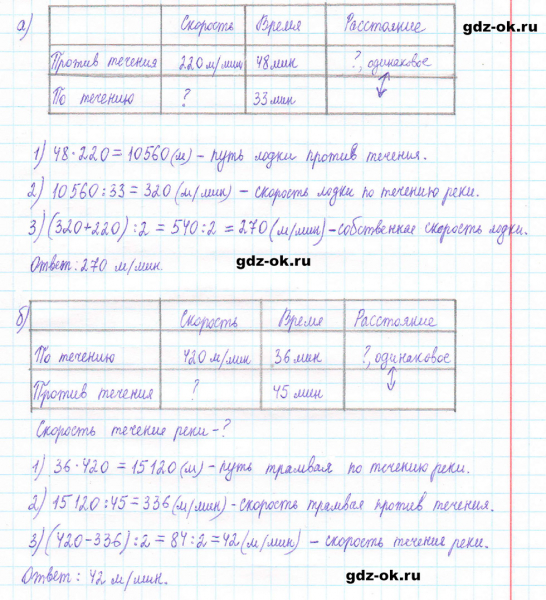 gdz-ok.ru
а)
Скорость Время Расстояние
Против течения 220 м/мин 48 мин ?, одинаковое
По течению ? 33 мин
1) 48 · 220 = 10560 (м) – путь лодки против течения.
2) 10560 : 33 = 320 (м/мин) – скорость лодки по течению реки.
3) (320+220) : 2 = 540 : 2 = 270 (м/мин) – собственная скорость лодки.
Ответ: 270 м/мин.
gdz-ok.ru
б)
Скорость Время Расстояние
По течению 420 м/мин 36 мин ?, одинаковое
Против течения ? 45 мин
gdz-ok.ru
Скорость течение реки – ?
1) 36 · 420 = 15120 (м) – путь трамвая по течению реки.
2) 15120 : 45 = 336 (м/мин) – скорость трамвая против течения.
3) (420-336) : 2 = 84 : 2 = 42 (м/мин) – скорость течение реки.
Ответ : 42 м/мин.
gdz-ok.ru